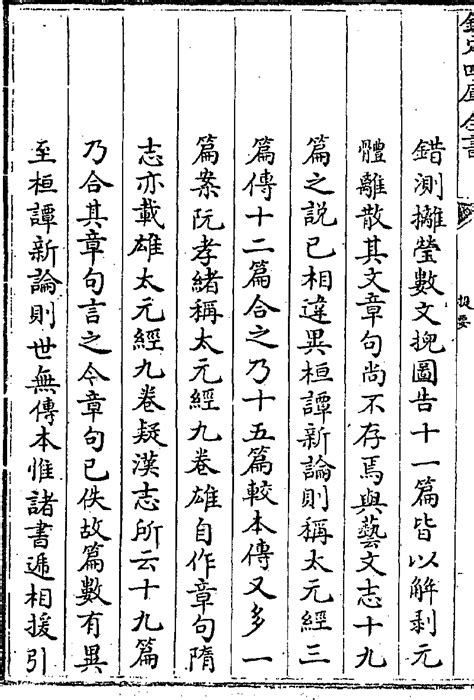 欽定四庫全書
提要
錯測攡瑩數文掜圖告十一篇皆以解剥元
體離散其文章句尚不存焉與藝文志十九
篇之説已相違異桓譚新論則稱太元經三
篇傳十二篇合之乃十五篇較本傳又多一
篇案阮孝緒稱太元經九卷雄自作章句隋
志亦載雄太元經九卷疑漢志所云十九篇
乃合其章句言之今章句已佚故篇數有異
至桓譚新論則世無傳本惟諸書遞相援引